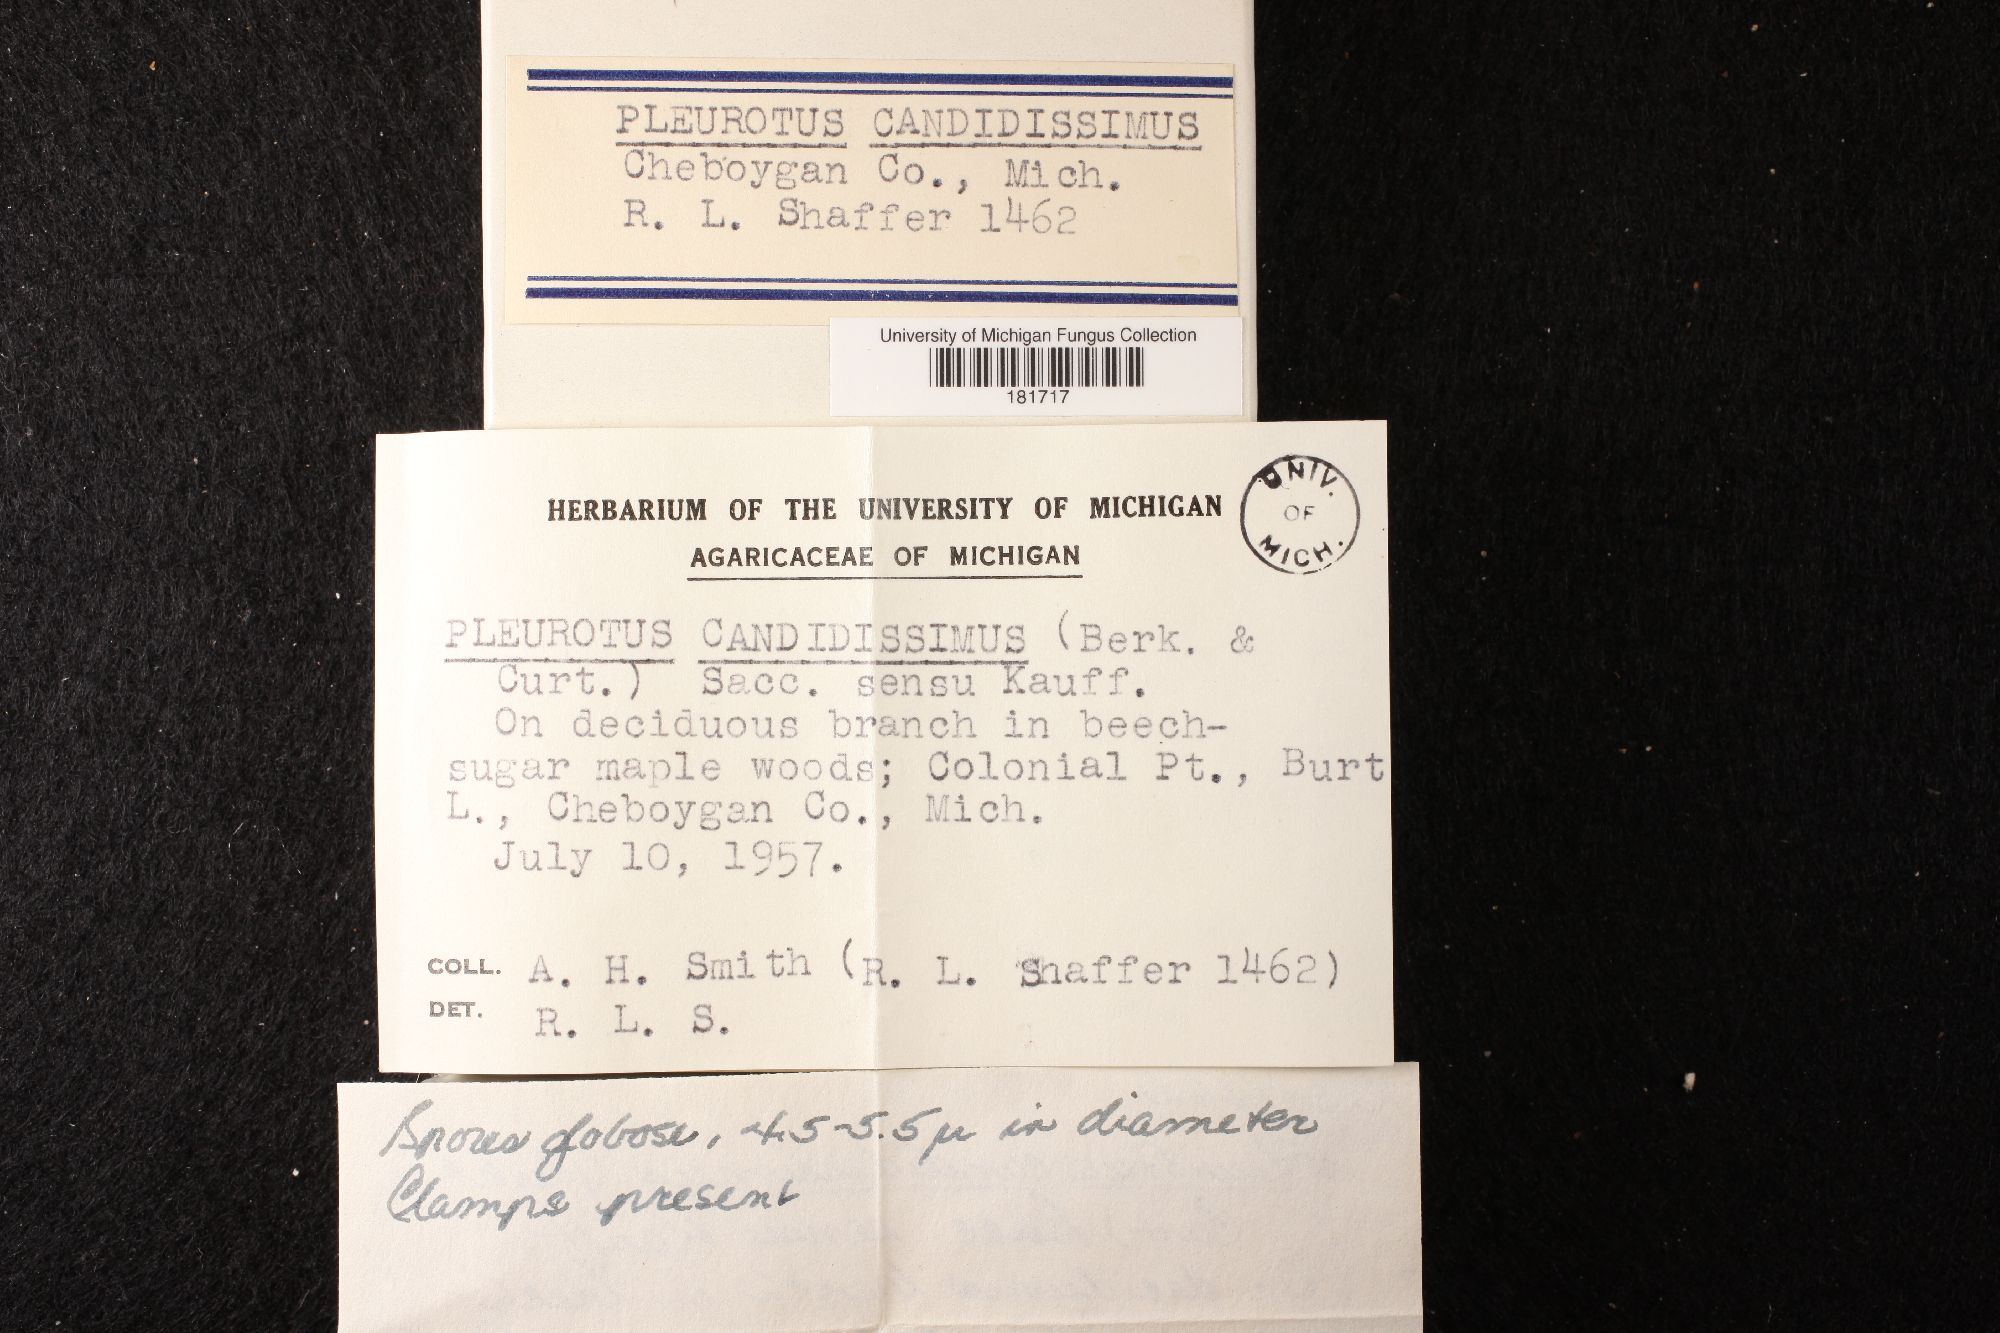 PLEUROTUS CANDIDISSIMUS
Cheboygan Co., Mich.
R. L. Shaffer 1462
University of Michigan Fungus Collection
181717
UNIV.
OF
MICH.
HERBARIUM OF THE UNIVERSITY OF MICHIGAN
AGARICACEAE OF MICHIGAN
PLEUROTUS CANDIDISSIMUS (Berk. &
Curt.) Sacc. sensu Kauff.
On deciduous branch in beech-
sugar maple woods; Colonial Pt., Burt
L., Cheboygan Co., Mich.
July 10, 1957.
COLL. A. H. Smith (R. L. Shaffer 1462)
DET. R. L. S.
Spores globose, 4.5-5.5 µ in diameter
Clamps present